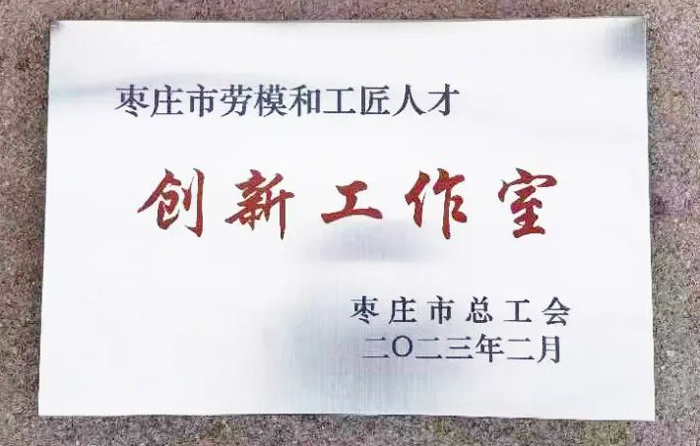 枣庄市劳模和工匠人才
创新工作室
枣庄市总工会
二〇二三年二月